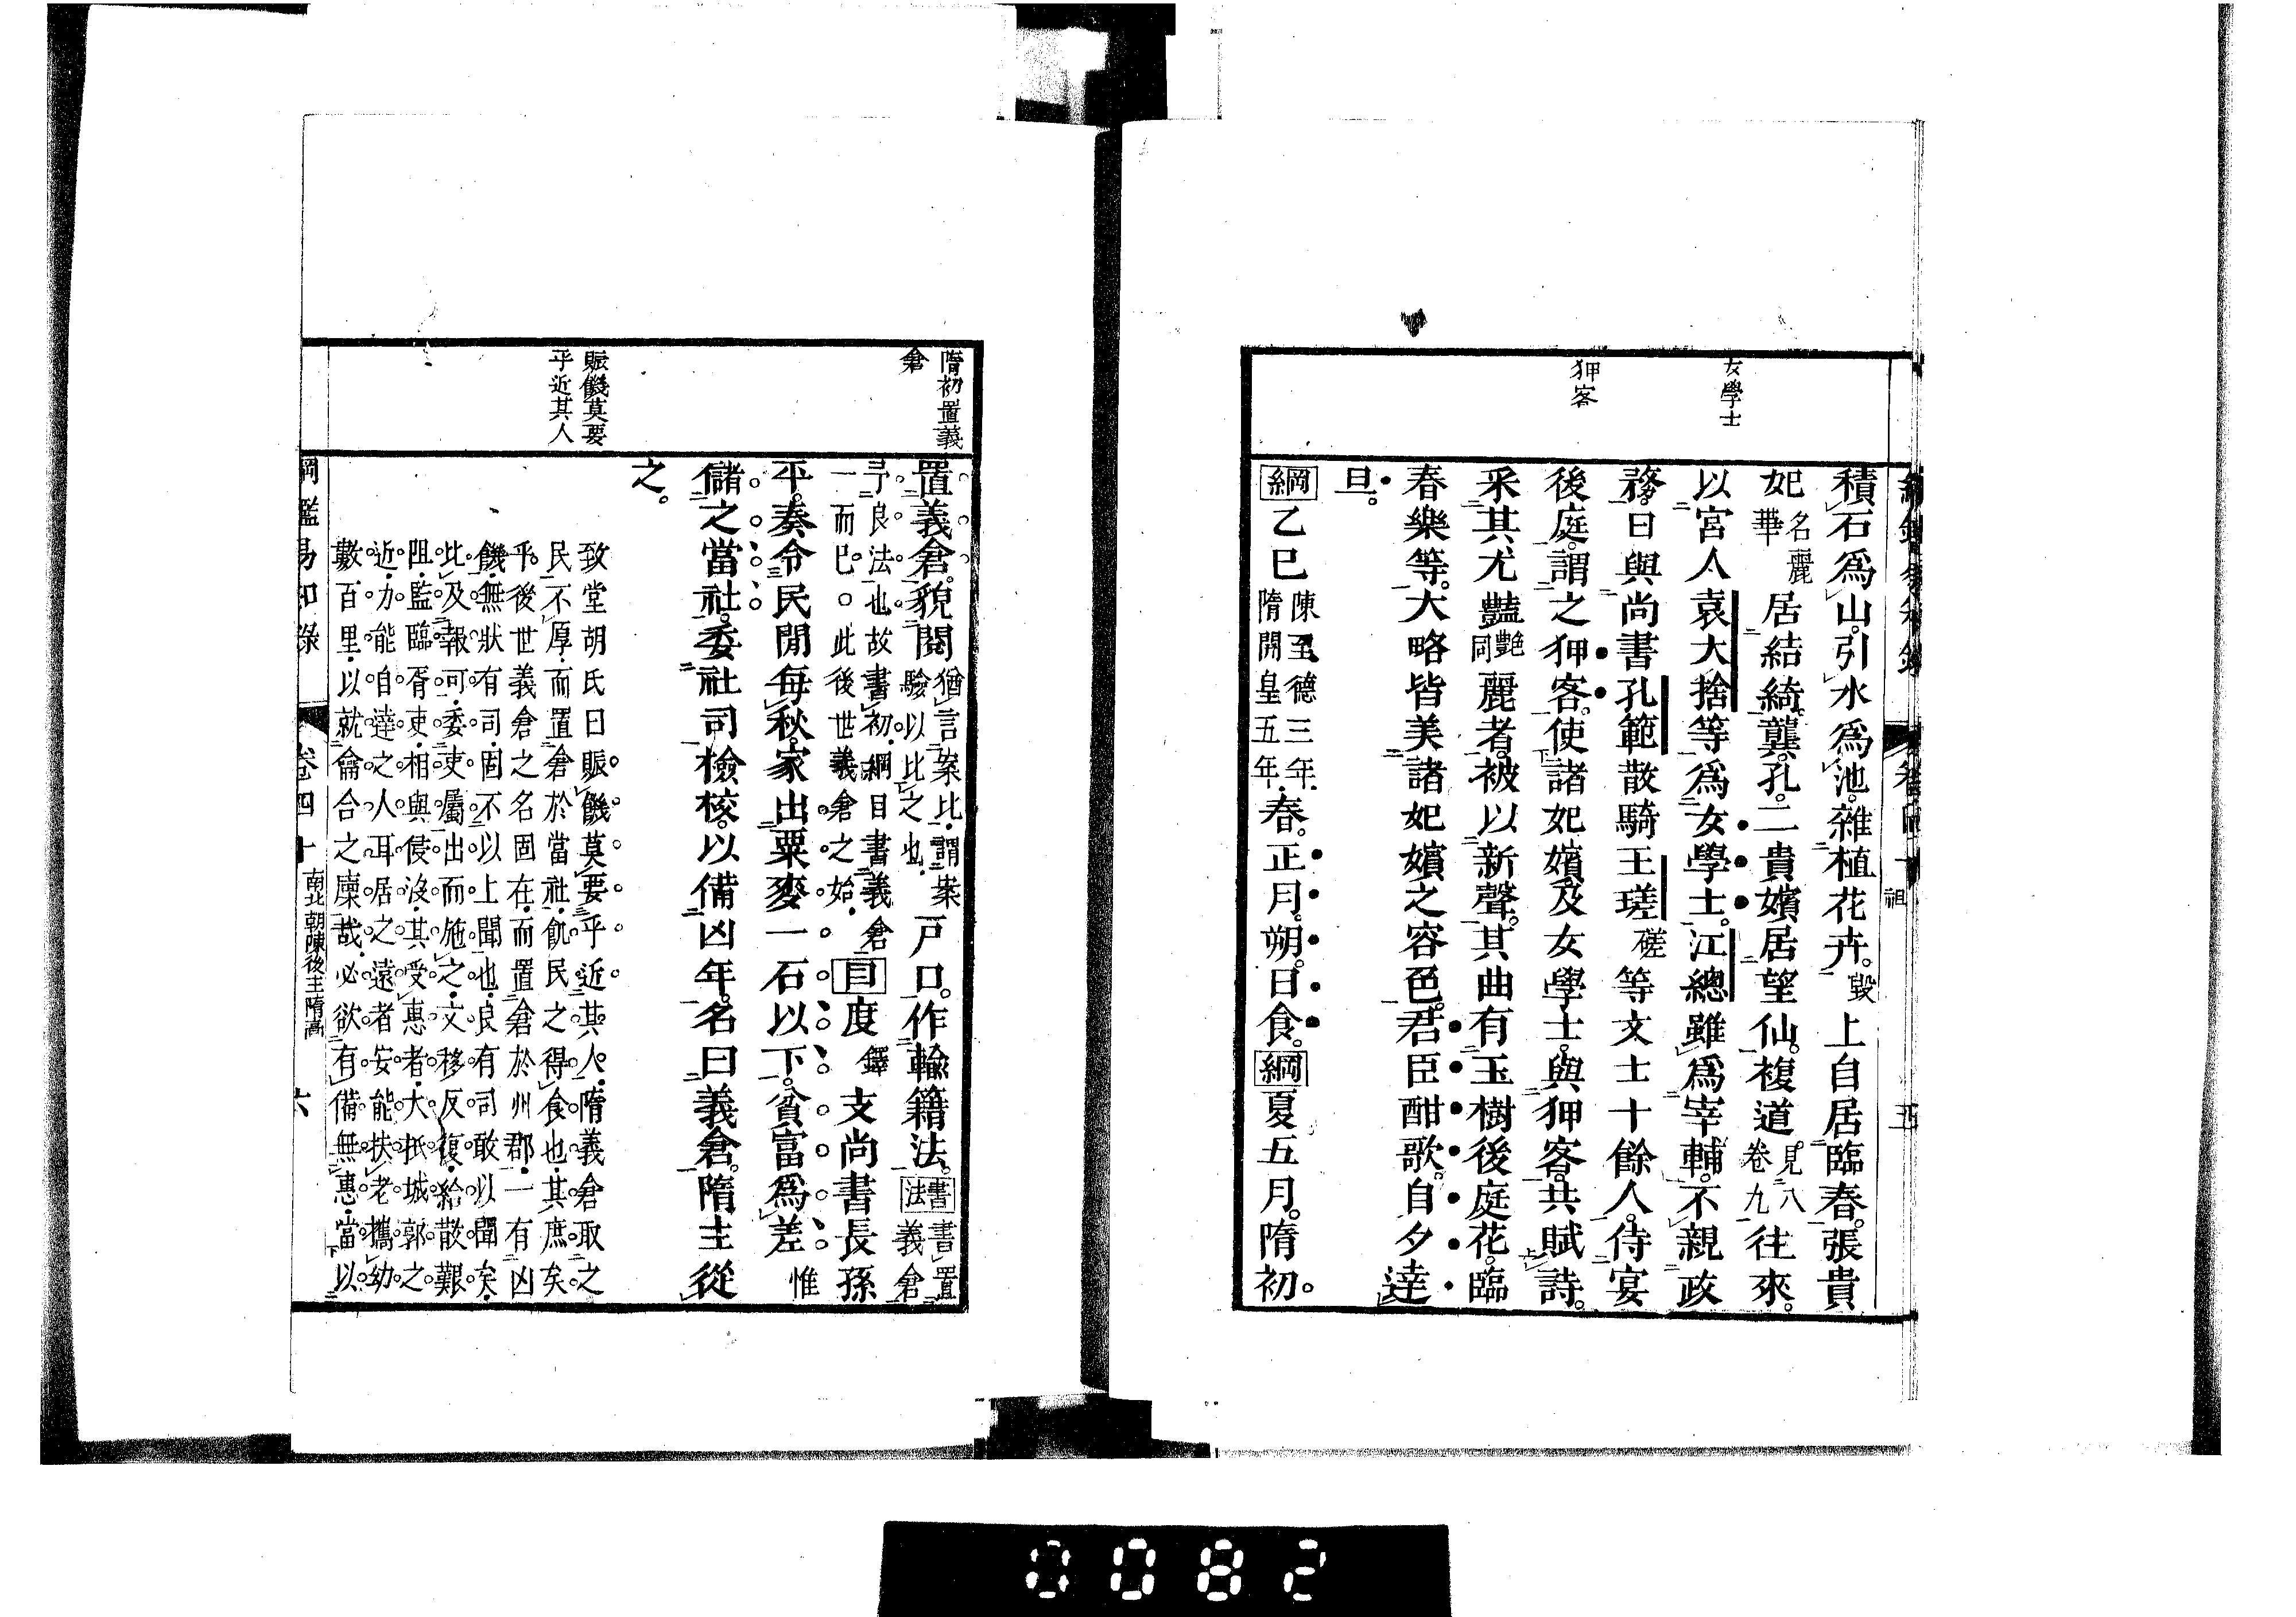 女學士
狎客
積石爲山。引水爲池。雜植花卉。毀上自居臨春。張貴
妃名麗華居結綺。龔孔二貴嬪居望仙。複道見八卷九往來。
以宮人袁大捨等爲女學士。江總雖爲宰輔。不親政
務。日與尚書孔範散騎王瑳磋等文士十餘人。侍宴
後庭。謂之狎客。使諸妃嬪及女學士。與狎客。共賦詩。
采其尤豔艷同麗者。被以新聲。其曲有玉樹後庭花。臨
春樂等。大略皆美諸妃嬪之容色。君臣酣歌。自夕達
旦。
綱乙巳陳至德三年隋開皇五年春。正月。朔。日食。綱夏五月。隋初。
隋初置義
倉
賑饑莫要
乎近其人
置義倉。貌閱猶言案比謂案驗以比之也戸口。作輸籍法。書法書置義倉
予良法也故書初綱目書義倉一而巳。此後世義倉之始目度鐸支尚書長孫
平。奏令民閒每秋。家出粟麥一石以下。貧富爲差惟
儲之當社。委社司檢校。以備凶年。名曰義倉。隋主從
之。
致堂胡氏曰賑饑莫要乎近其人隋義倉取之
民不厚而置倉於當社飢民之得食也其庶矣
乎後世義倉之名固在而置倉於州郡一有凶
饑無狀有司固不以上聞也良有司敢以聞矣
比及報可委吏屬出而施之文移反復給散艱
阻監臨胥吏相與侵沒其受惠者大抵城郭之
近力能自達之人耳居之遠者安能扶老攜幼
數百里以就龠合之廩哉必欲有備無患當以
綱鑑易知錄 卷四十 南北朝陳後主隋高 六
0082